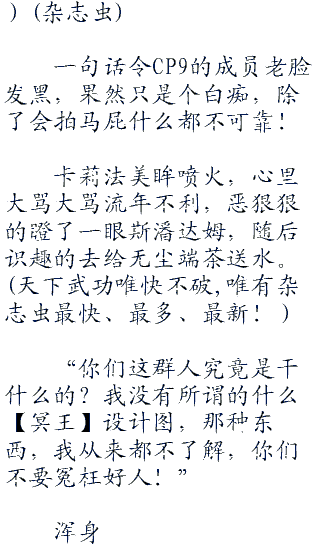 ）(杂志虫)
一句话令CP9的成员老脸
发黑，果然只是个白痴，除
了会拍马屁什么都不可靠！
卡莉法美眸喷火，心里
大骂大骂流年不利，恶狠狠
的瞪了一眼斯潘达姆，随后
识趣的去给无尘端茶送水。
(天下武功唯快不破,唯有杂
志虫最快、最多、最新！)
“你们这群人究竟是干
什么的？我没有所谓的什么
【冥王】设计图，那种东
西，我从来都不了解，你们
不要冤枉好人！”
浑身